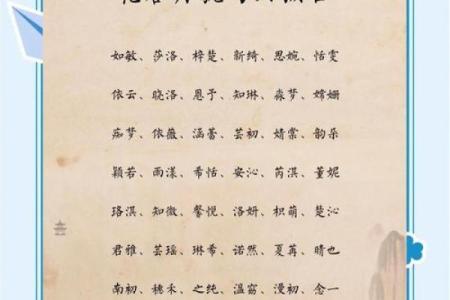 如敏、莎洛、梓楚、新绮、思婉、恬雯
依云、晓洛、恩予、知琳、淼梦、嫦姗
痴梦、依薇、涵蕾、芸初、婧棠、韵朵
颖若、雨漾、希恬、安沁、芮淇、董妮
珞淇、知微、馨悦、洛妍、枳萌、楚沁
君雅、芸瑶、琳希、诺然、夏苒、晴也
南初、穗禾、之纯、温窈、漫初、念一